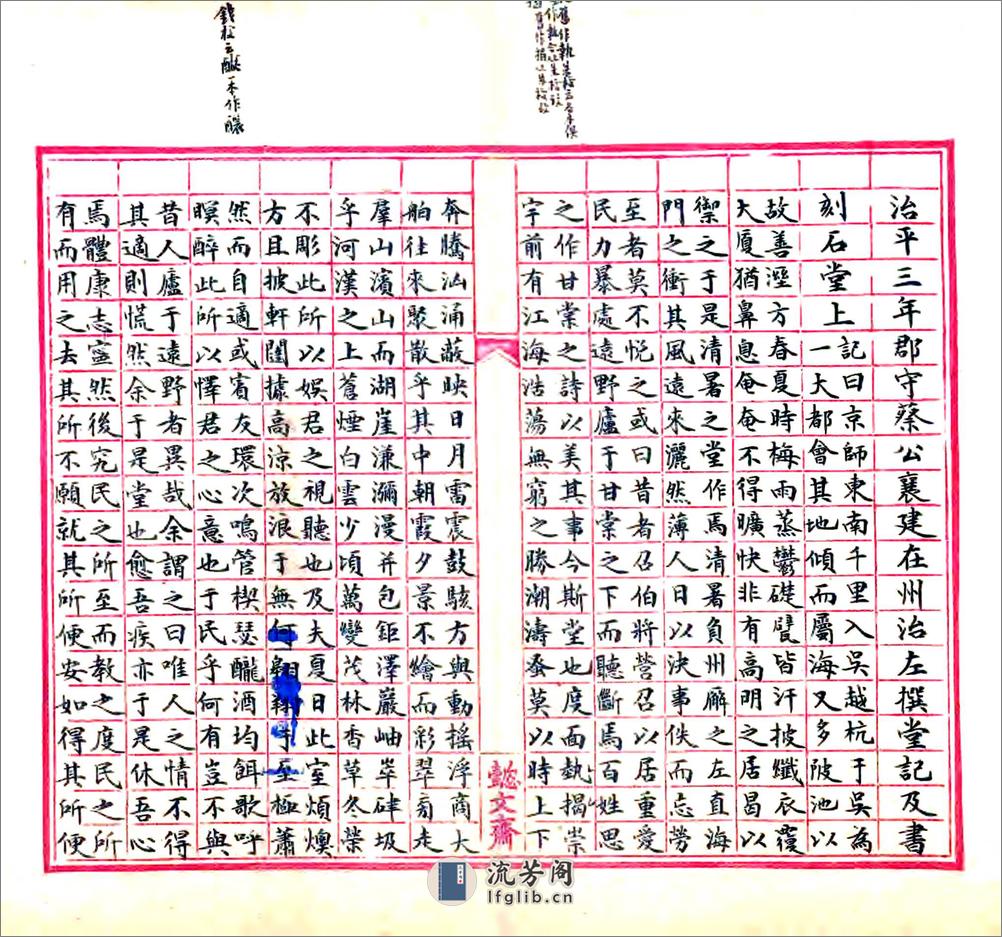 治平三年郡守蔡公襄建在州治左撰堂記及書
刻石堂上
記曰京師東南千里入吳越杭于吳為
一大都會其地傾而屬海又多陂池以
故善溼方春夏時梅雨蒸鬱礎甓皆汗披纖衣覆
大廈猶鼻息奄奄不得曠快非有高明之居昌以
禦之于是清暑之堂作焉清暑負州廨之左直海
門之衝其風遠來灑然薄人日以決事佚而忘勞
至者莫不悅之或曰昔者召伯將營召以居重愛
民力暴處遠野廬于甘棠之下而聽斷焉百姓思
之作甘棠之詩以美其事今斯堂也度面埶揭崇
宇前有江海浩蕩無窮之勝潮濤蚤莫以時上下
懿文齋
錢校云釃一本作釀
奔騰汹涌蔽映日月雷震鼓駭方輿動搖浮商大
舶往來聚散乎其中朝霞夕景不繪而彩翠匒走
羣山濱山而湖崖溓瀰漫并包鉅澤巖岫崒硉圾
乎河漢之上蒼煙白雲少頃萬變茂林香草冬榮
不彫此所以娛君之視聽也及夫夏日此室煩燠
方且披軒闥據高涼放浪于無何翱翔乎至極蕭
然而自適或賓友環次鳴管楔瑟釃酒均餌歌呼
瞑醉此所以懌君之心意也于民乎何有豈不與
昔人廬于遠野者異哉余謂之曰唯人之情不得
其適則慌然余于是堂也愈吾疾亦于是休吾心
焉體康志寧然後究民之所至而教之度民之所
有而用之去其所不願就其所便安如得其所便
流芳阁
lfglib.cn